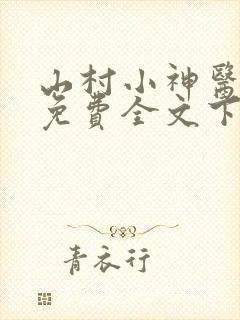 山村小神醫
免費全文下
青衣行